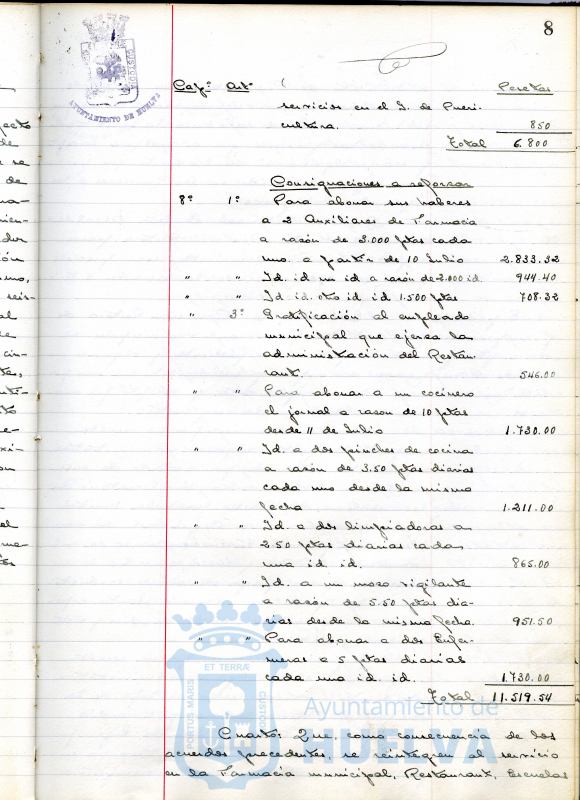 8
AYUNTAMIENTO DE HUELVA
Capº Artº Pesetas
servicios en el I. de Pueri-
cultura. 850
Total 6.800
Consignaciones a reforzar
8º 1º Para abonar sus haberes
a 2 Auxiliares de Farmacia
a razón de 3.000 ptas cada
uno a partir de 10 Julio 2.833.32
" " Id. id un id a razón de 2.000 id. 944.40
" " Id id. otro id id 1.500 ptas 708.32
" 3º Gratificación al empleado
municipal que ejerza la
administración del Restau-
rant. 546.00
" " Para abonar a un cocinero
el jornal a razon de 10 ptas
desde 11 de Julio 1.730.00
" " Id. a dos pinches de cocina
a razón de 3.50 ptas diarias
cada uno desde la misma
fecha 1.211.00
" " Id. a dos limpiadoras a
2.50 ptas diarias cada
una id. id. 865.00
" " Id. a un mozo vigilante
a razón de 5.50 ptas dia-
rias desde la misma fecha. 951.50
" " Para abonar a dos Enfer-
meras a 5 ptas diarias
cada una id. id. 1.730.00
Total 11.519.54
Cuarto: Que, como consecuencia de los
acuerdos precedentes, se reintegren al servicio
en la Farmacia municipal, Restaurant, Escuelas
PORTUS MARIS ET TERRÆ CUSTODIA
Ayuntamiento de
HUELVA